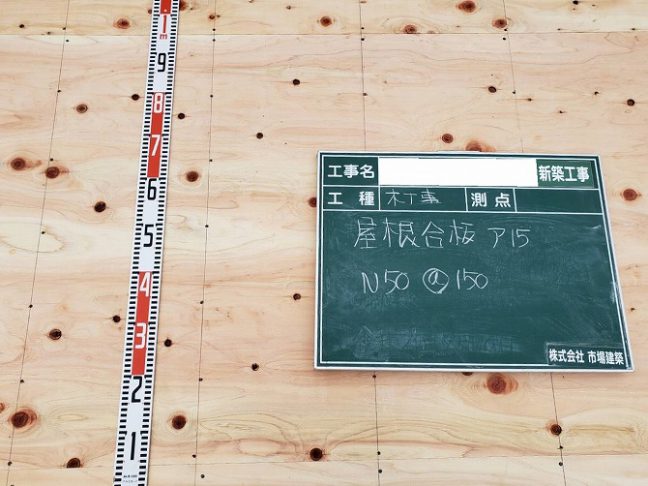 1m
9
8
7
6
5
4
3
2
1
工事名 新築工事
工種 木工事 測点
屋根合板 ア15
N50 @150
株式会社 市場建築